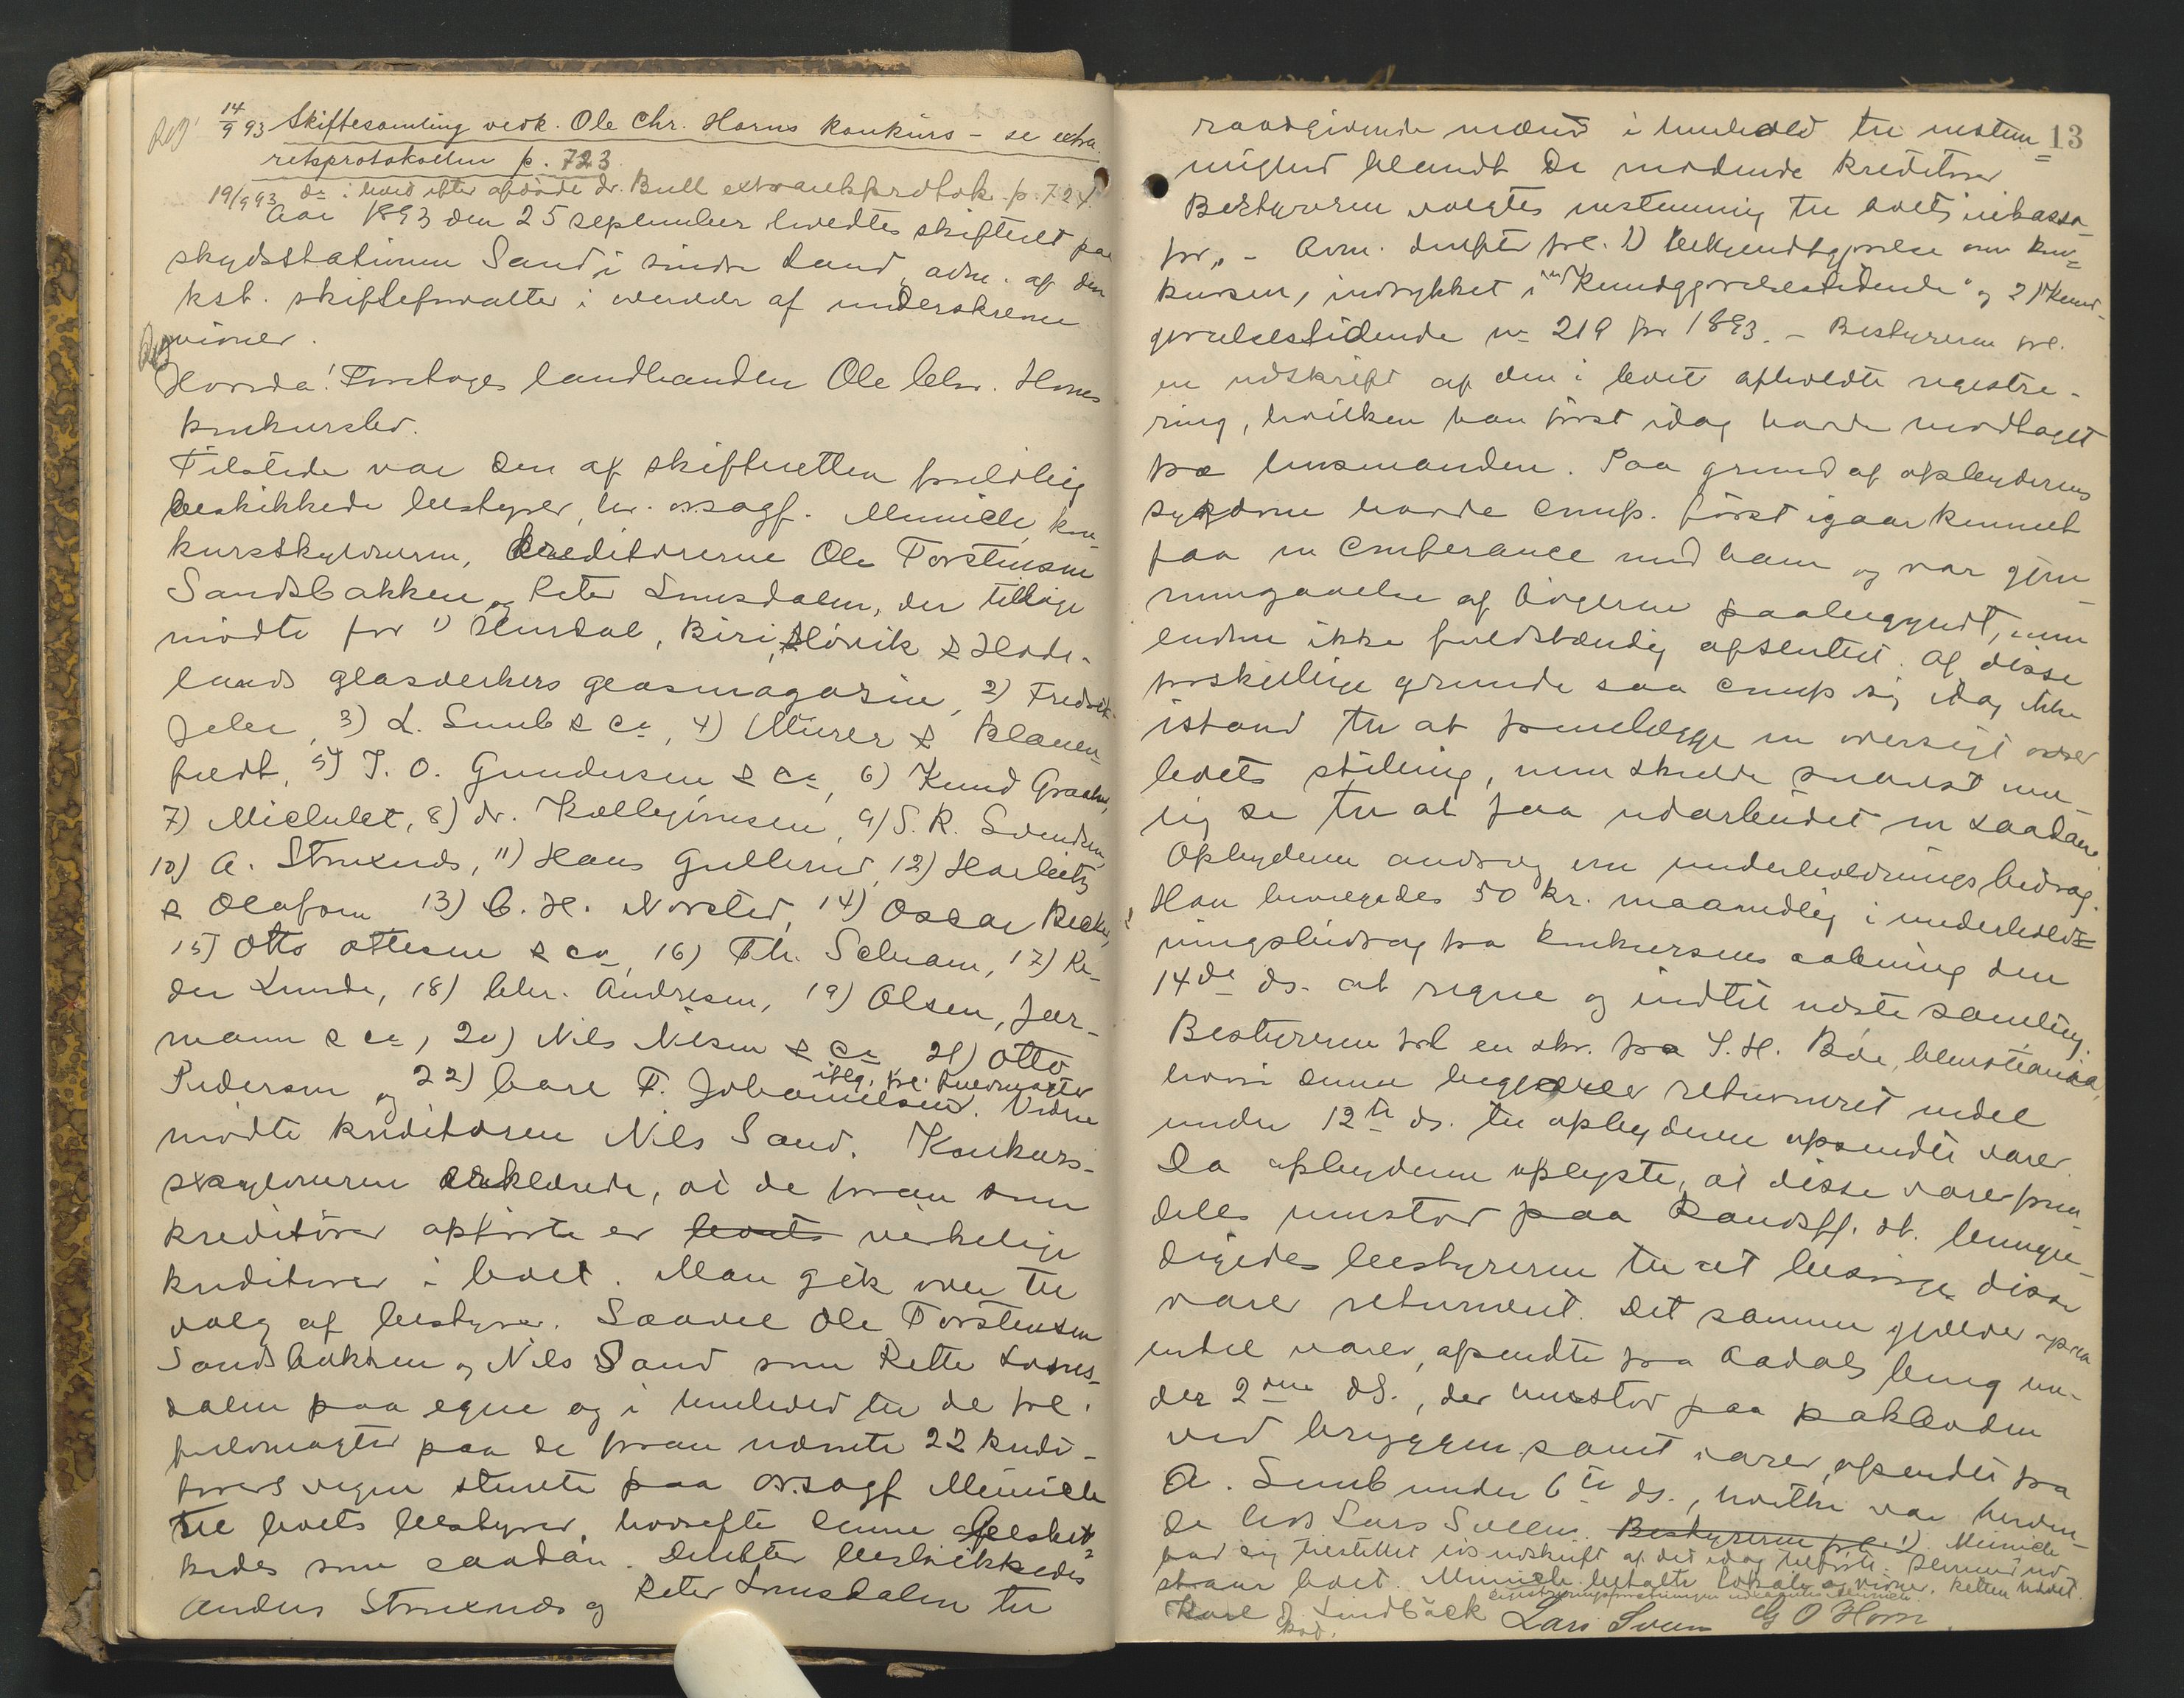 14/9 93 Skiftesamling vedk. Ole Chr. Horns konkurs - se extra-
retsprotokollen p. 723
19/9 93 do i boet efter afdøde dr. Bull extraretsprotok. p. 724.
Aar 1893 den 25 september holdtes skifteret paa
skydsstationen Sand i Søndre Land, adm. af den
kst. skifteforvalter i overvær af underskrevne
vidner.
Hvorda! Foretoges landhandler Ole Chr. Horns
konkursbo.
Tilstede var den af skifteretten foreløbig
beskikkede bestyrer, hr. o.r.sagf. Minnich, kon-
kursskyldneren, kreditorerne Ole Torstensen
Sandsbakken og Peter Lunsdalen, der tillige
mødte for 1) Hurdal, Biri, Høvik & Hade-
lands glasverkers glasmagasin, 2) Fredrik
Jeler, 3) L. Sunb & Co, 4) Mürer & Blauen-
feldt, 5) J. O. Gundersen & Co, 6) Knud Graahn,
7) Michelet, 8) dr. Kallevig, 9) S. R. Svendsen,
10) A. Struxnes, 11) Hans Gullerud, 12) Harbitz
& Olafsen 13) C. H. Norsted, 14) Oscar Becker,
15) Otto Ottesen & co, 16) Th. Schram, 17) Pe-
der Lunde, 18) Chr. Andresen, 19) Olsen, Jar-
mann & co, 20) Nils Nilsen & Co 21) Otto
iflg. frl. fuldmagter
Pedersen og 22) Carl F. Johannesen. Videre
mødte kreditoren Nils Sand. Konkurs-
skyldneren erklærede, at de foran som
kreditorer opførte er boets virkelige
kreditorer i boet. Man gik over til
valg af bestyrer. Saavel Ole Torstensen
Sandsbakken og Nils Sand som Peter Lunds-
dalen paa egne og i henhold til de frl.
fuldmagter paa de foran nævnte 22 kredi-
torers vegne stemte paa o.r.sagf Minnich
til boets bestyrer, hvorefter denne beskik-
kedes som saadan. Derefter beskikkedes
Anders Struxnes og Peter Lunsdalen til
13
raadgivende mænd i henhold til enstem-
mighed blandt de mødende kreditorer
Bestyreren valgtes enstemmig til boets inkassa-
tor. - Adm. derefter frl. 1) bekjendtgjørelse om kon-
kursen, indrykket i "Kundgjørelsestidende" og 2) Kund-
gjørelsestidende no 219 for 1893. - Bestyreren frl.
en udskrift af den i boet afholdte registre-
ring, hvilken han først idag havde modtaget
fra lensmanden. Paa grund af opbyderens
sygdom havde comp. først igaar kunnet
faa en conferance med ham og var gjen-
nemgaaelse af bøgerne paabegyndt, men
endnu ikke fuldstændig afsluttet. Af disse
forskjellige grunde saa comp sig idag ikke
istand til at fremlægge en oversigt over
boets stilling, men skulde snarest mu-
lig se til at faa udarbeidet en saadan.
Opbyderen androg om underholdningsbidrag.
Han bevilgedes 50 kr. maanedlig i underhold-
ningsbidrag fra konkursens aabning den
14de ds. at regne og indtil næste samling.
Bestyreren frl en skr. fra S. H. Bøe, Christiania,
hvori denne begjærer returneret endel
under 12te ds. til opbyderen afsendte varer.
Da opbyderen oplyste, at disse varer frem-
deles henstod paa Randsfj. st. bemyn-
digedes bestyreren til at besørge disse
varer returneret. Det samme gjælder ogsaa
endel varer, afsendte fra Aadals brug un-
der 2den ds., der henstod paa pakboden
ved bryggen samt varer, afsendte fra
A. Sunb under 6te ds., hvilke var henstaa-
de hos Lars Sveen. Bestyreren frl. 1) Minnich
bad sig bestillet los udskrift af det idag tilførte. Hermed ud-
staar boet. Minnich betalte lokale og vidner. Retten hævet.
Karl J. Lindbäck Lars Sveen G O Horn
kst.